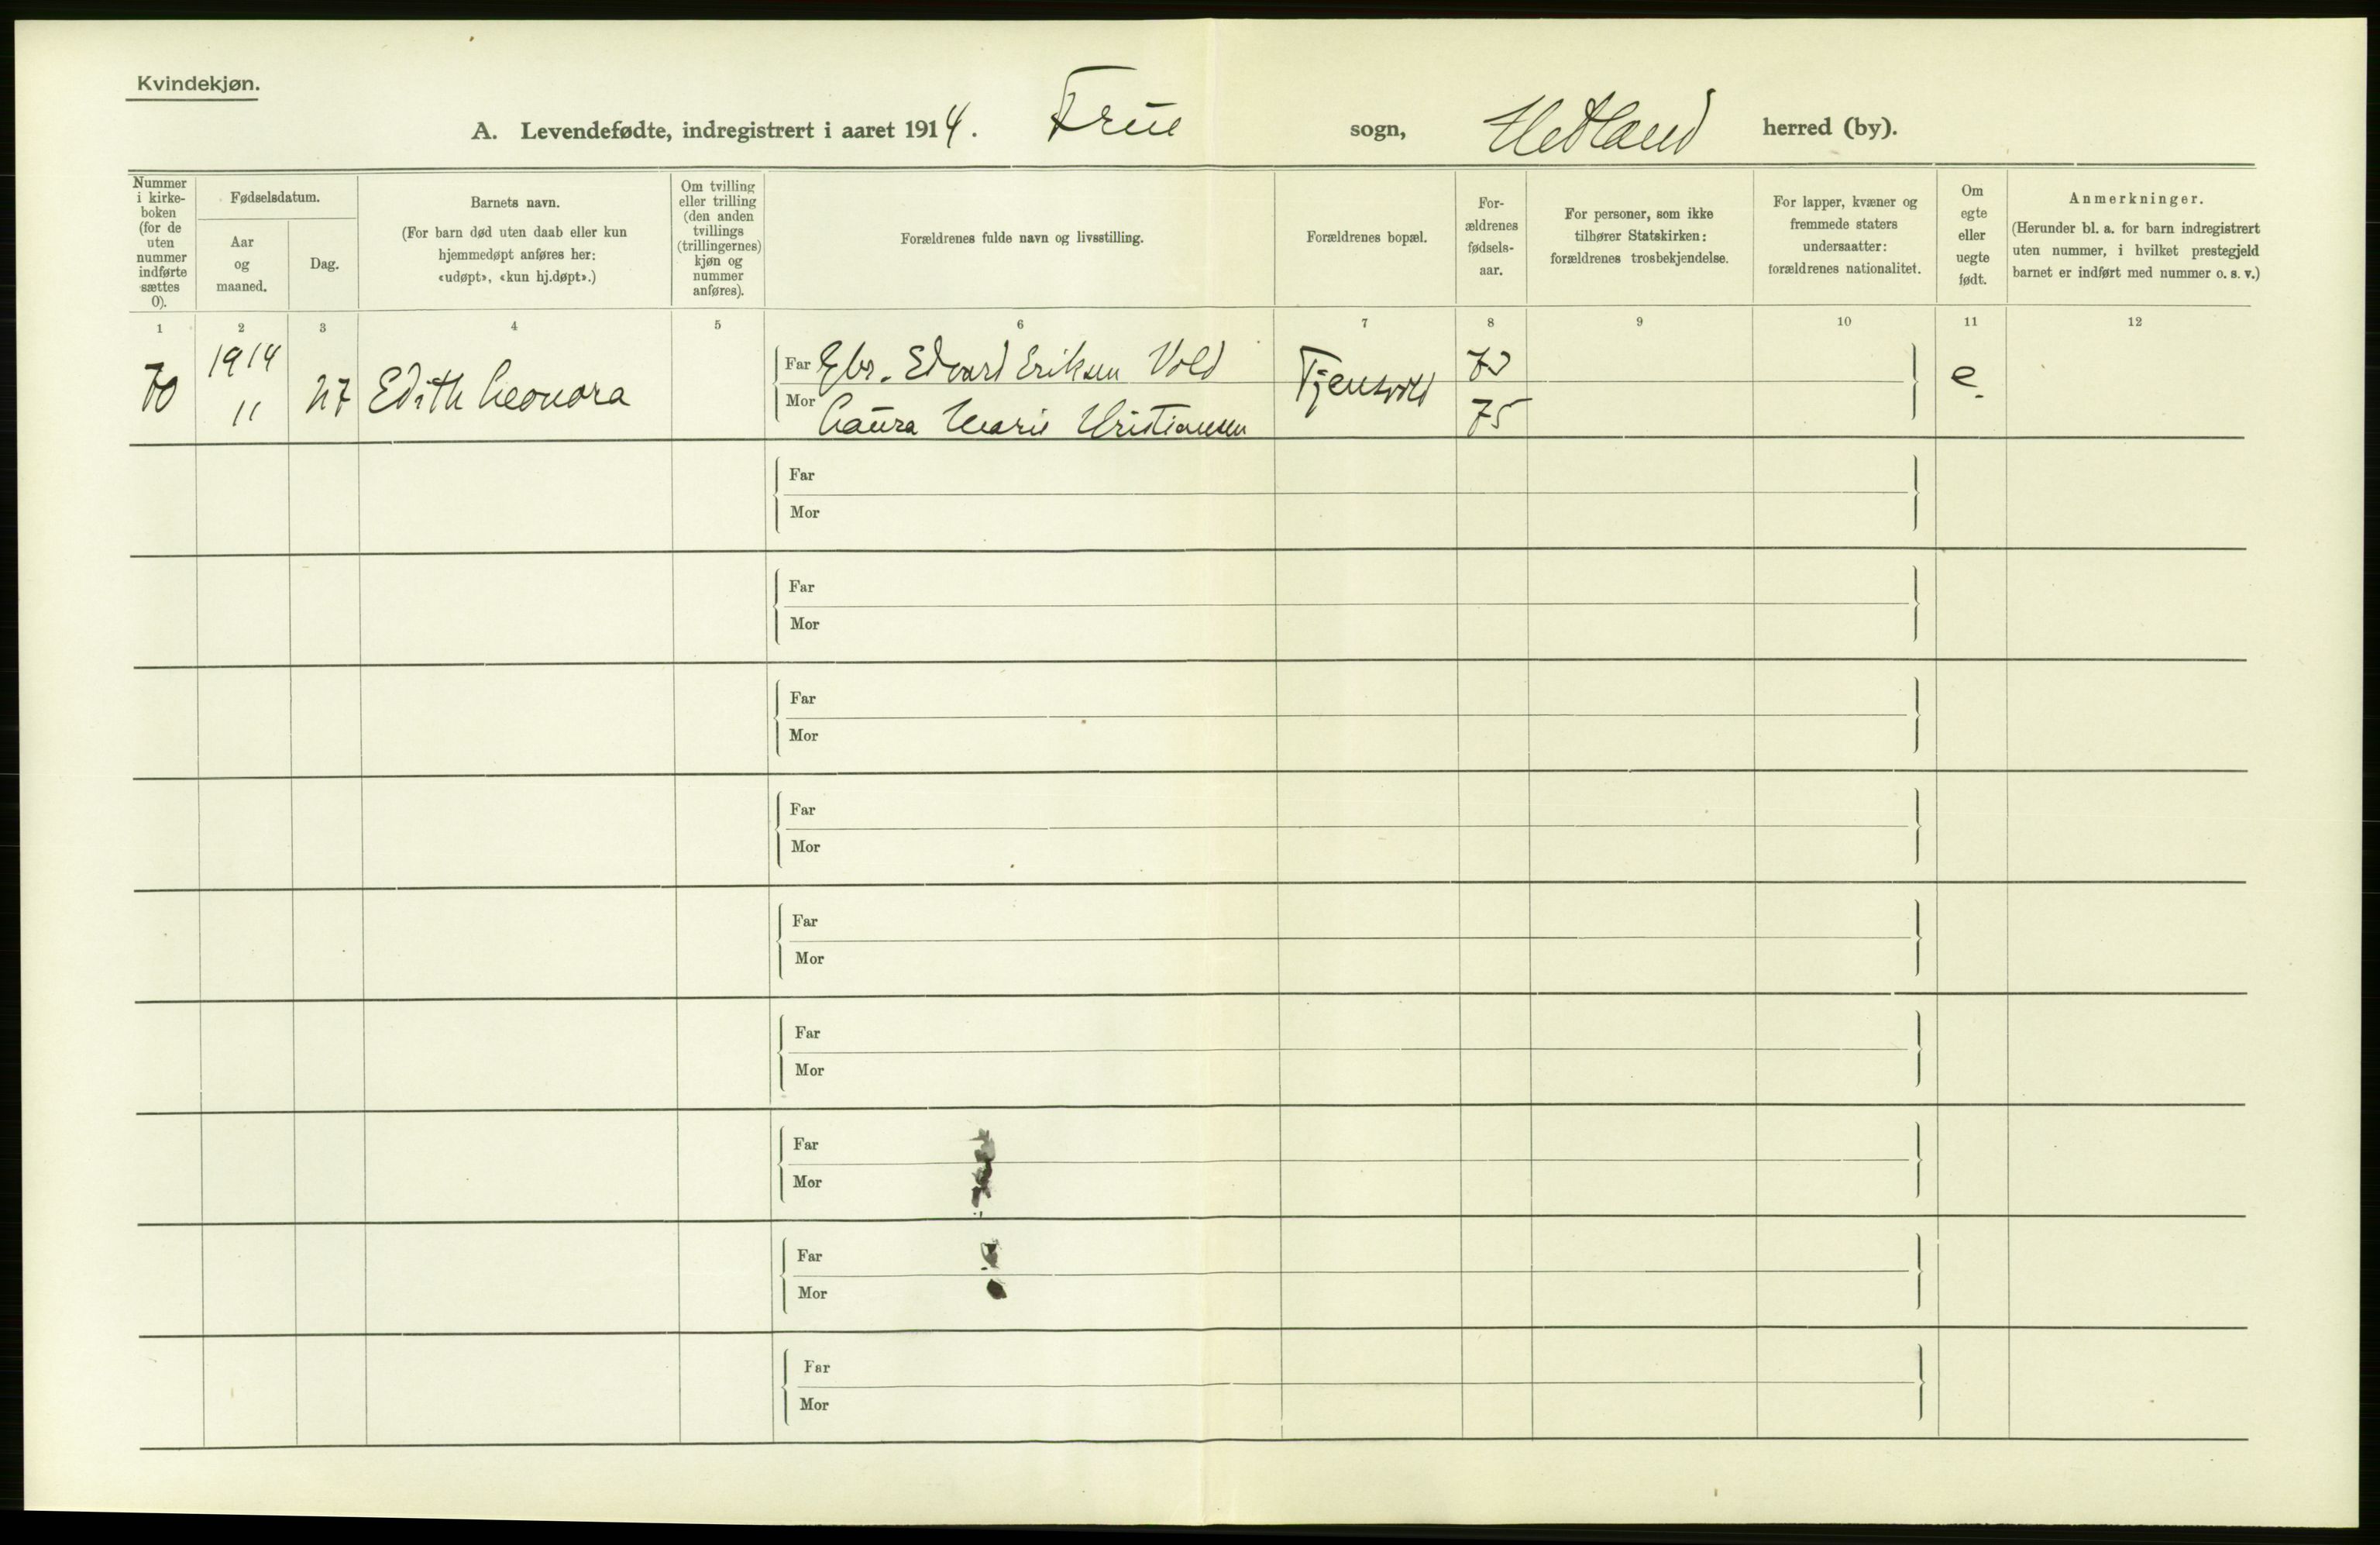 Kvindekjøn.
A. Levendefødte, indregistrert i aaret 1914. Frue sogn, Hetland herred (by).
Nummer i kirke-boken (for de uten nummer indførte sættes 0).
Fødselsdatum.
Aar og maaned.
Dag.
Barnets navn.
(For barn død uten daab eller kun
hjemmedøpt anføres her:
«udøpt», «kun hj.døpt».)
Om tvilling
eller trilling
(den anden
tvillings
(trillingernes)
kjøn og
nummer
anføres).
Forældrenes fulde navn og livsstilling.
Forældrenes bopæl.
For-
ældrenes
fødsels-
aar.
For personer, som ikke
tilhører Statskirken:
forældrenes trosbekjendelse.
For lapper, kvæner og
fremmede staters
undersaatter:
forældrenes nationalitet.
Om
egte
eller
uegte
født.
Anmerkninger.
(Herunder bl. a. for barn indregistrert
uten nummer, i hvilket prestegjeld
barnet er indført med nummer o. s. v.)
1 2 3 4 5 6 7 8 9 10 11 12
70 1914 11 27 Edith Leonora
Far Gbr. Edvard Eriksen Vold Tjensvold e.
Mor Laura Marie Kristiansen 75
Far
Mor
Far
Mor
Far
Mor
Far
Mor
Far
Mor
Far
Mor
Far
Mor
Far
Mor
Far
Mor